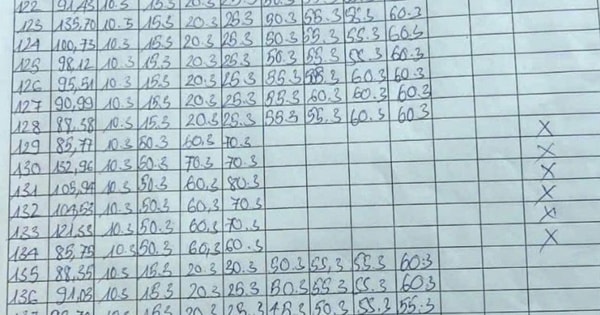 122 91,43 10.3 15.3 20.3 25.3 50.3 55.3 55.3 60.3
123 135,70 10.3 15.3 20.3 25.3 50.3 55.3 55.3 60.3
124 100,73 10.3 15.3 20.3 25.3 50.3 55.3 55.3 60.3
125 98,12 10.3 15.3 20.3 25.3 50.3 55.3 55.3 60.3
126 95,51 10.3 15.3 20.3 25.3 55.3 55.3 60.3 60.3
127 90,99 10.3 15.3 20.3 25.3 55.3 60.3 60.3 60.3
128 88,38 10.3 15.3 20.3 25.3 55.3 55.3 60.3 60.3
129 85,77 10.3 50.3 60.3 70.3 X
130 132,96 10.3 50.3 70.3 70.3 X
131 105,94 10.3 50.3 60,3 80.3 X
132 10.3 50.3 60.3 70.3 X
133 10.3 50.3 60.3 70.3 X
134 85,75 10.3 50.3 60,3 60.3 X
135 88,35 10.3 15.3 20.3 30.3 50.3 55,3 55.3 60.3
136 91,03 10.3 15.3 20.3 25.3 50.3 55.3 55.3 60.3
10.3 15.3 20.3 25.3 45.3 50.3 55.3 55.3